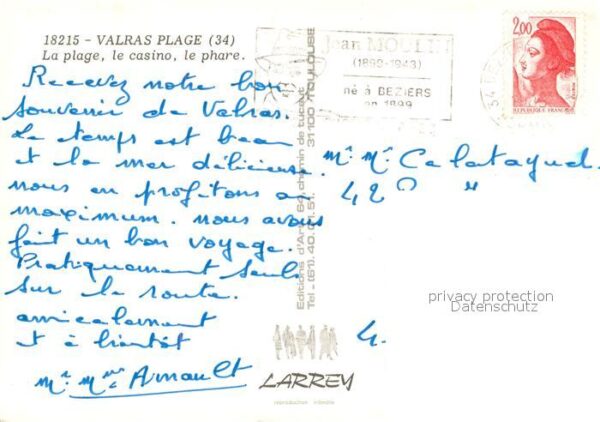 18215 - VALRAS PLAGE (34)
La plage, le casino, le phare.
Recevez notre bon
souvenir de Valras.
Le temps est beau
et la mer délicieuse.
nous en profitons au
maximum. nous avons
fait un bon voyage.
Pratiquement seuls
sur la route.
amicalement
et à bientôt
Mr. Mme Arnault
Jean MOULIN
(1899-1943)
né à BEZIERS
en 1899
2,00
REPUBLIQUE FRANÇAISE
Editions d'Art 64, chemin de
31100 TOULOUSE
Tel - (61). 40.01.51.
Mr Mr Calatayud.
privacy protection
Datenschutz
LARREY
reproduction interdite